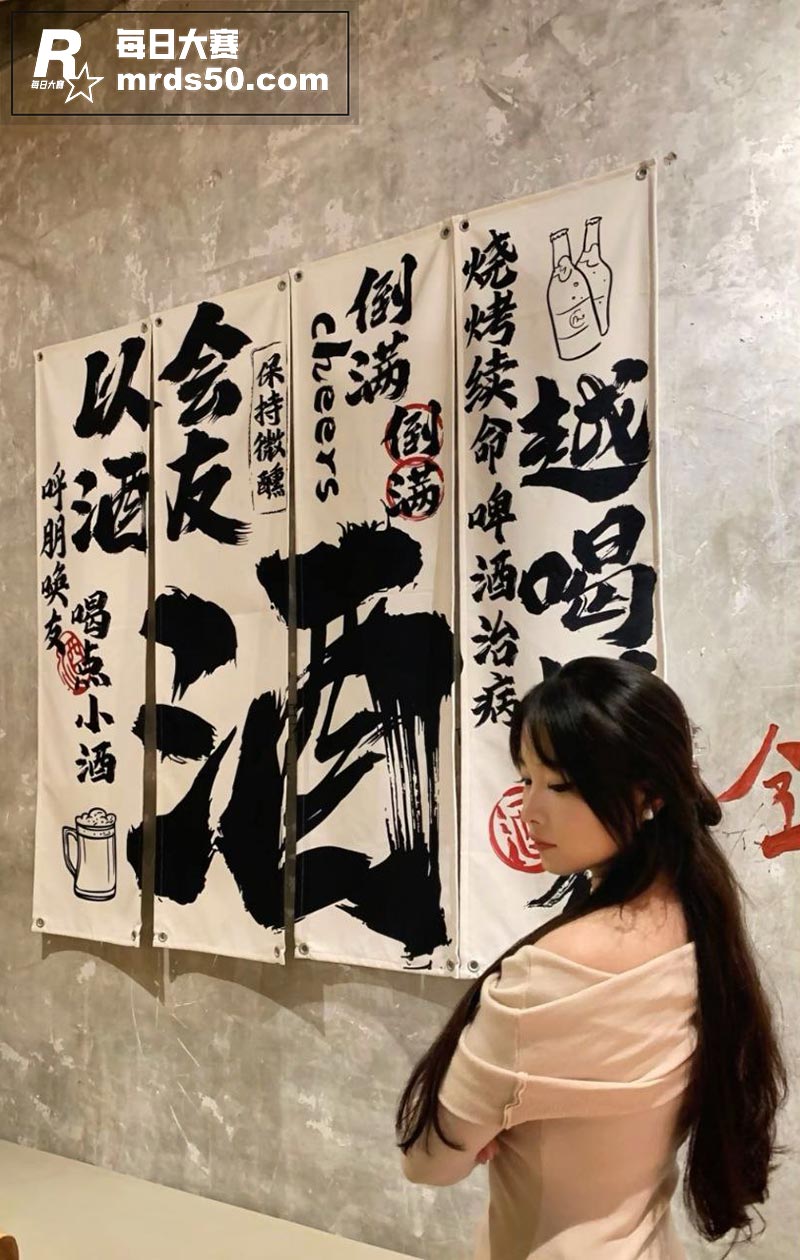 R
每日大赛
每日大赛
mrds50.com
以酒
会友
呼朋唤友
喝点小酒
保持微醺
倒满
cheers
倒满
酒
烧烤续命啤酒治病
越喝
酒